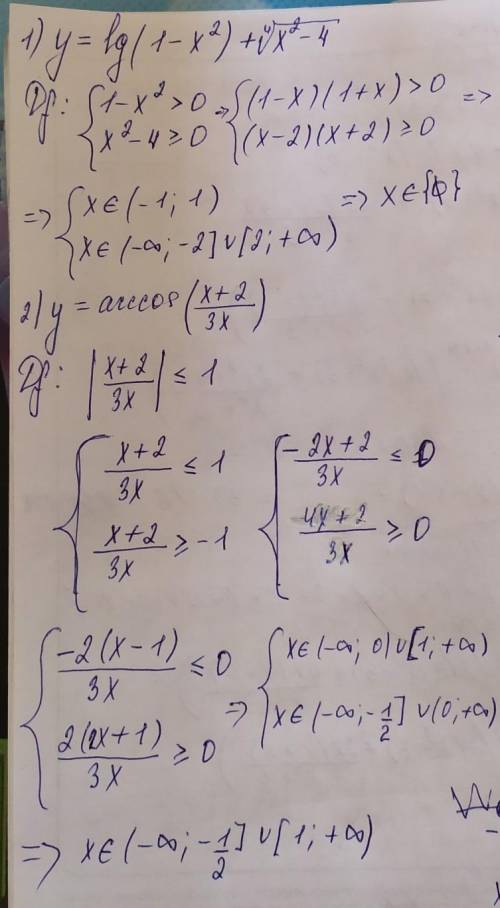 1) y = lg(1-x²) + ∜(x²-4)
Df: { 1-x² > 0 => { (1-x)(1+x) > 0 =>
{ x²-4 ≥ 0 { (x-2)(x+2) ≥ 0
=> { x ∈ (-1; 1) => x ∈ {ϕ}
{ x ∈ (-∞; -2] ∪ [2; +∞)
2) y = arccos((x+2)/(3x))
Df: |(x+2)/(3x)| ≤ 1
{ (x+2)/(3x) ≤ 1 { (-2x+2)/(3x) ≤ 0
{ (x+2)/(3x) ≥ -1 { (4x+2)/(3x) ≥ 0
{ (-2(x-1))/(3x) ≤ 0 => { x ∈ (-∞; 0) ∪ [1; +∞)
{ (2(2x+1))/(3x) ≥ 0 { x ∈ (-∞; -1/2] ∪ (0; +∞)
=> x ∈ (-∞; -1/2] ∪ [1; +∞)